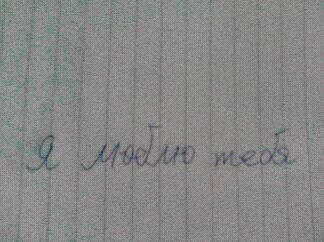 Я люблю тебя